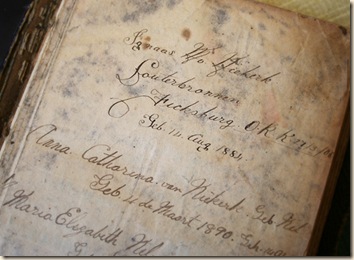 Ignaas v. Niekerk
Louterbronnen
Ficksburg. O R K
Geb. 14 Aug. 1884
Anna Catharina van Niekerk Geb Nel
Geb 4 de Maart 1890.
Maria Elizabeth Nel